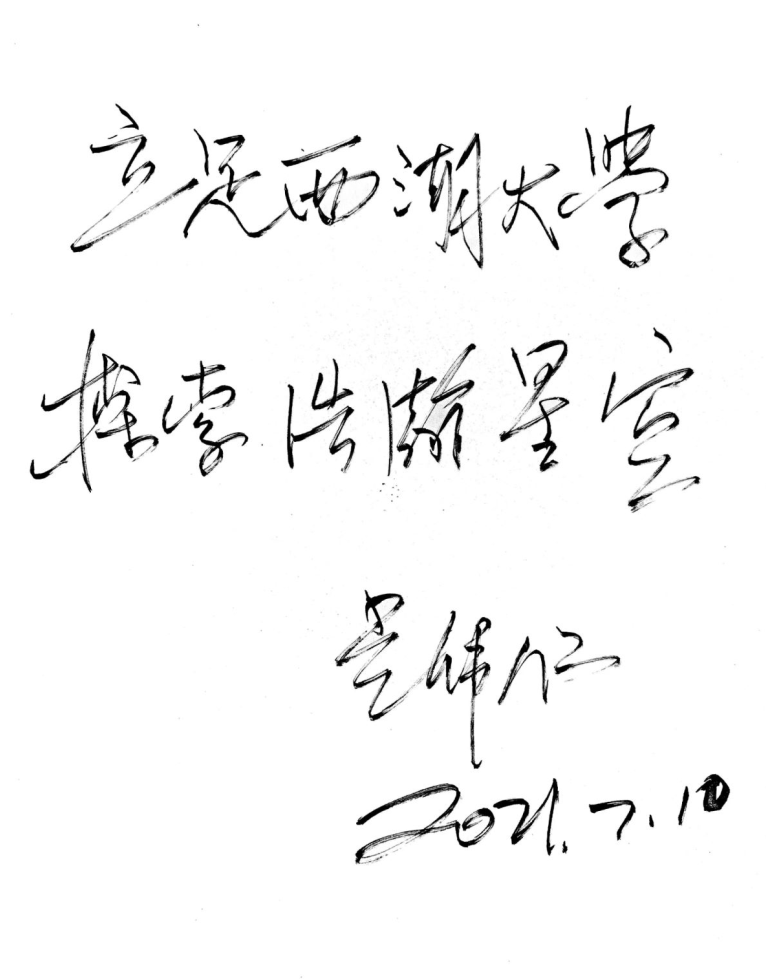 立足西湖大學
探索浩瀚星空
吴伟仁
2021.7.10